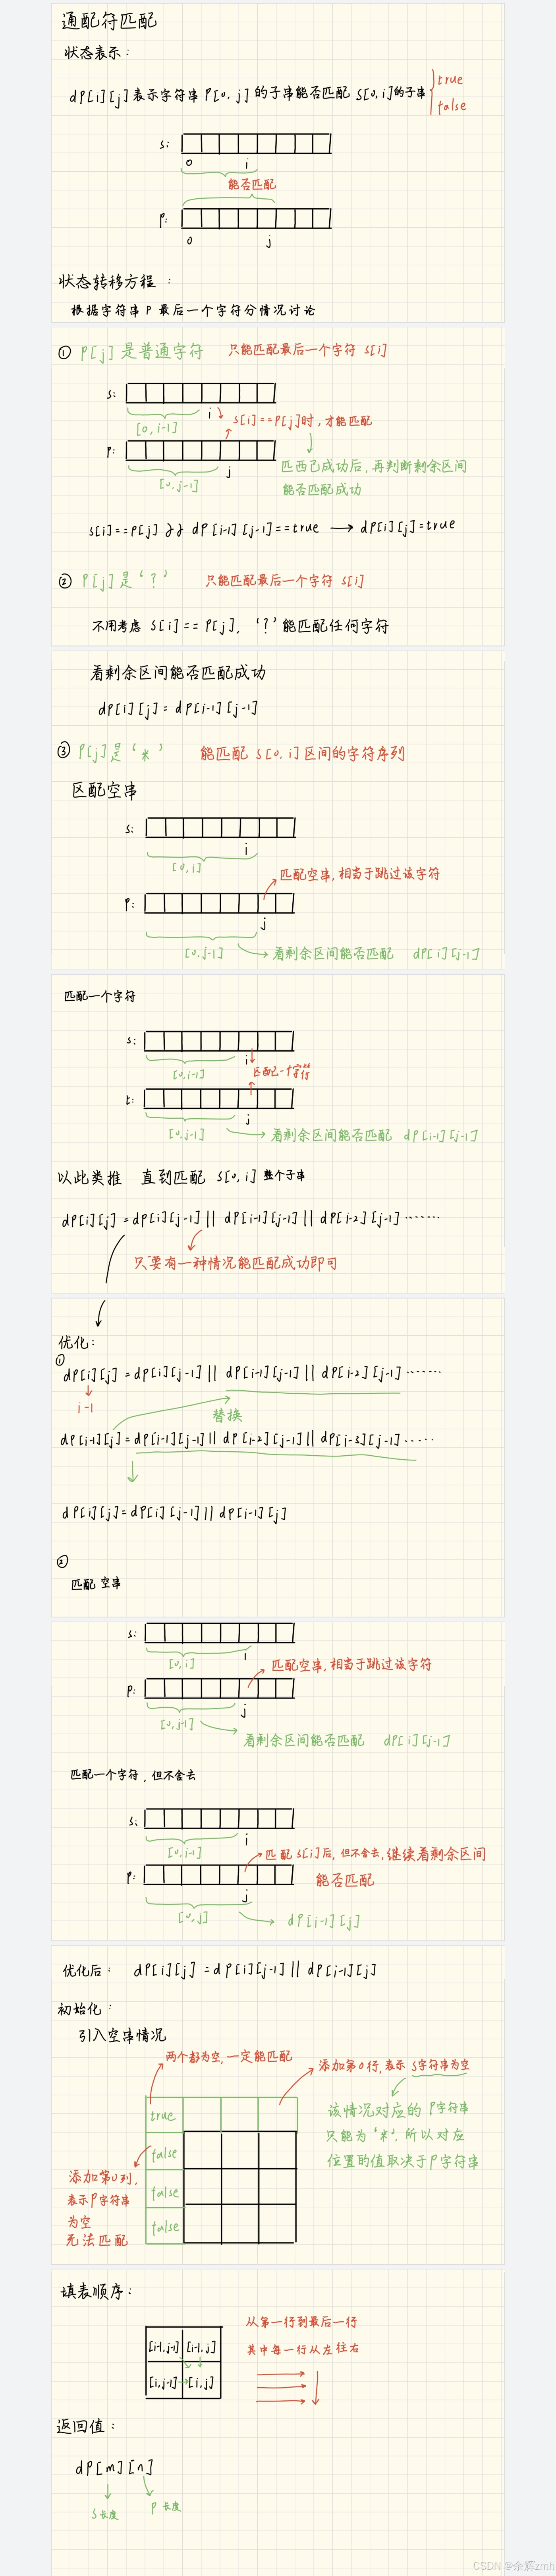 通配符匹配
状态表示：
dp[i][j]表示字符串 P[0, j] 的子串能否匹配 S[0, i]的子串 true
false
s:
0 i
能否匹配
p:
0 j
状态转移方程：
根据字符串 P 最后一个字符分情况讨论
① P[j] 是普通字符 只能匹配最后一个字符 S[i]
s:
[0, i-1] i
s[i]==P[j]时，才能匹配
p:
[0, j-1] j
匹配成功后，再判断剩余区间
能否匹配成功
s[i]==P[j] && dp[i-1][j-1]==true → dp[i][j]=true
② P[j]是‘?’ 只能匹配最后一个字符 S[i]
不用考虑 S[i] == P[j]，‘?’能匹配任何字符
看剩余区间能否匹配成功
dp[i][j] = dp[i-1][j-1]
③ P[j]是‘*’ 能匹配 S[0, i]区间的字符序列
区配空串
s:
i
[0, i]
匹配空串，相当于跳过该字符
p:
j
[0, j-1] 看剩余区间能否匹配 dp[i][j-1]
匹配一个字符
s:
[0, i-1] i
匹配一个字符
t:
[0, j-1] j
看剩余区间能否匹配 dp[i-1][j-1]
以此类推 直到匹配 S[0, i] 整个子串
dp[i][j] = dp[i][j-1] || dp[i-1][j-1] || dp[i-2][j-1] ······
只要有一种情况能匹配成功即可
优化：
①
dp[i][j] = dp[i][j-1] || dp[i-1][j-1] || dp[i-2][j-1] ······
i-1
替换
dp[i-1][j] = dp[i-1][j-1] || dp[i-2][j-1] || dp[i-3][j-1] ·····
dp[i][j] = dp[i][j-1] || dp[i-1][j]
②
匹配 空串
s:
[0, i] i
匹配空串，相当于跳过该字符
p:
[0, j-1] j
看剩余区间能否匹配 dp[i][j-1]
匹配一个字符，但不舍去
s:
[0, i-1] i
匹配 S[i]后，但不舍去，继续看剩余区间
能否匹配
p:
j
[0, j] dp[i-1][j]
优化后： dp[i][j] = dp[i][j-1] || dp[i-1][j]
初始化：
引入空串情况
两个都为空，一定能匹配
添加第0行，表示 S字符串为空
true
该情况对应的 P字符串
只能为‘*’，所以对应
位置的值取决于P字符串
false
false
false
添加第0列，
表示P字符串
为空
无法匹配
填表顺序：
[i-1, j-1] [i-1, j]
[i, j-1] [i, j]
从第一行到最后一行
其中每一行从左往右
返回值：
dp[m][n]
S长度 P长度
CSDN @余辉zmh